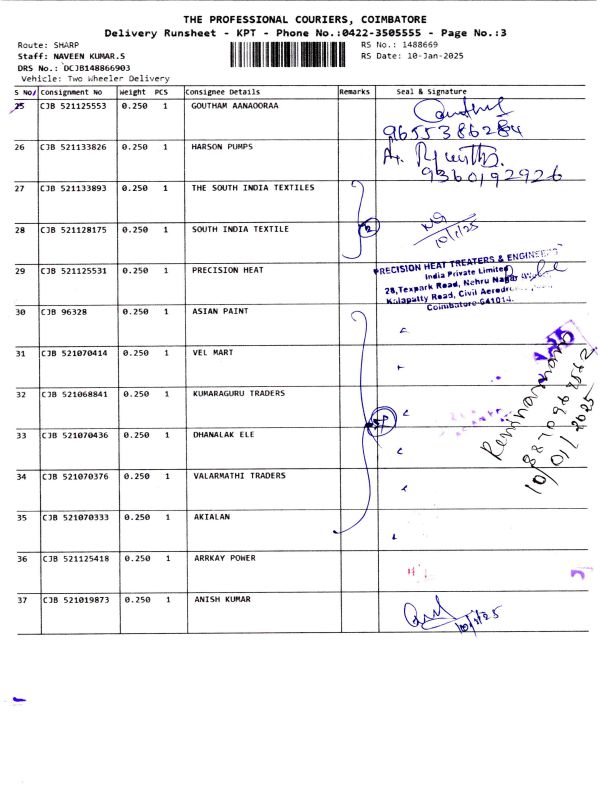 THE PROFESSIONAL COURIERS, COIMBATORE
Delivery Runsheet - KPT - Phone No.:0422-3505555 - Page No.:3
Route: SHARP
RS No.: 1488669
Staff: NAVEEN KUMAR.S
RS Date: 10-Jan-2025
DRS No.: DCJB148866903
Vehicle: Two Wheeler Delivery
S No/ Consignment No Weight PCS Consignee Details Remarks Seal & Signature
25 CJB 521125553 0.250 1 GOUTHAM AANAOORAA
9655386284
26 CJB 521133826 0.250 1 HARSON PUMPS
9360192926
27 CJB 521133893 0.250 1 THE SOUTH INDIA TEXTILES
28 CJB 521128175 0.250 1 SOUTH INDIA TEXTILE 2
10/1/25
29 CJB 521125531 0.250 1 PRECISION HEAT
PRECISION HEAT TREATERS & ENGINEE
India Private Limited
28, Texpark Road, Nehru Nagar
Kalapatty Road, Civil Aerodr
Coimbatore-641014.
30 CJB 96328 0.250 1 ASIAN PAINT
31 CJB 521070414 0.250 1 VEL MART
32 CJB 521068841 0.250 1 KUMARAGURU TRADERS
33 CJB 521070436 0.250 1 DHANALAK ELE
8870967562
10/01/2025
34 CJB 521070376 0.250 1 VALARMATHI TRADERS
35 CJB 521070333 0.250 1 AKIALAN
36 CJB 521125418 0.250 1 ARRKAY POWER
37 CJB 521019873 0.250 1 ANISH KUMAR
10/1/25